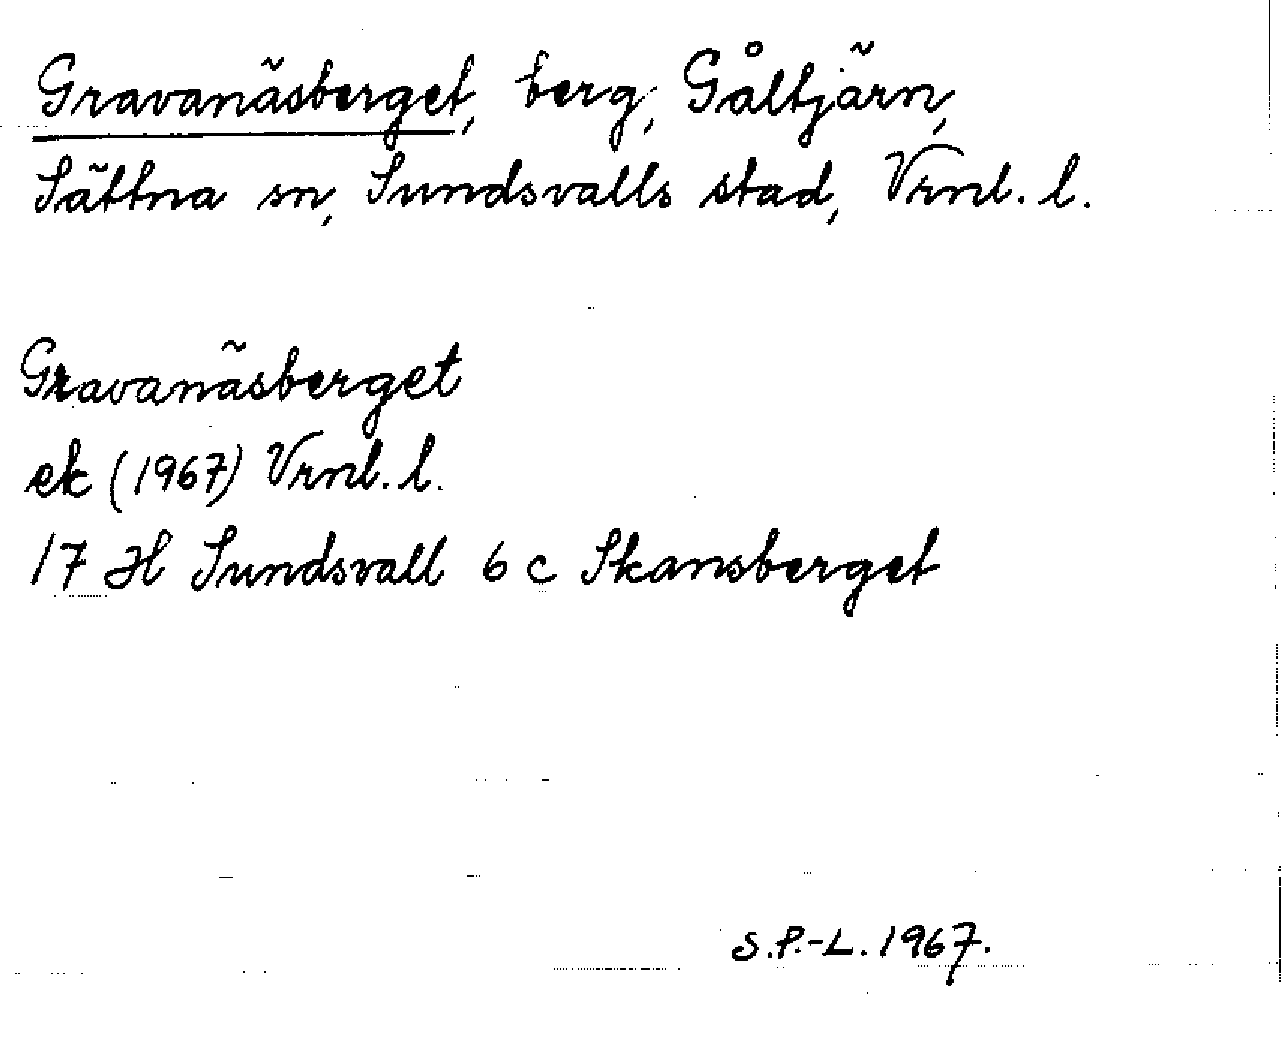 Gravanäsberget, berg, Gåltjärn,
Sättna sn, Sundsvalls stad, Vrnl. l.
Gravanäsberget
ek (1967) Vrnl. l.
17 H Sundsvall 6 c Skansberget
S.P.-L. 1967.